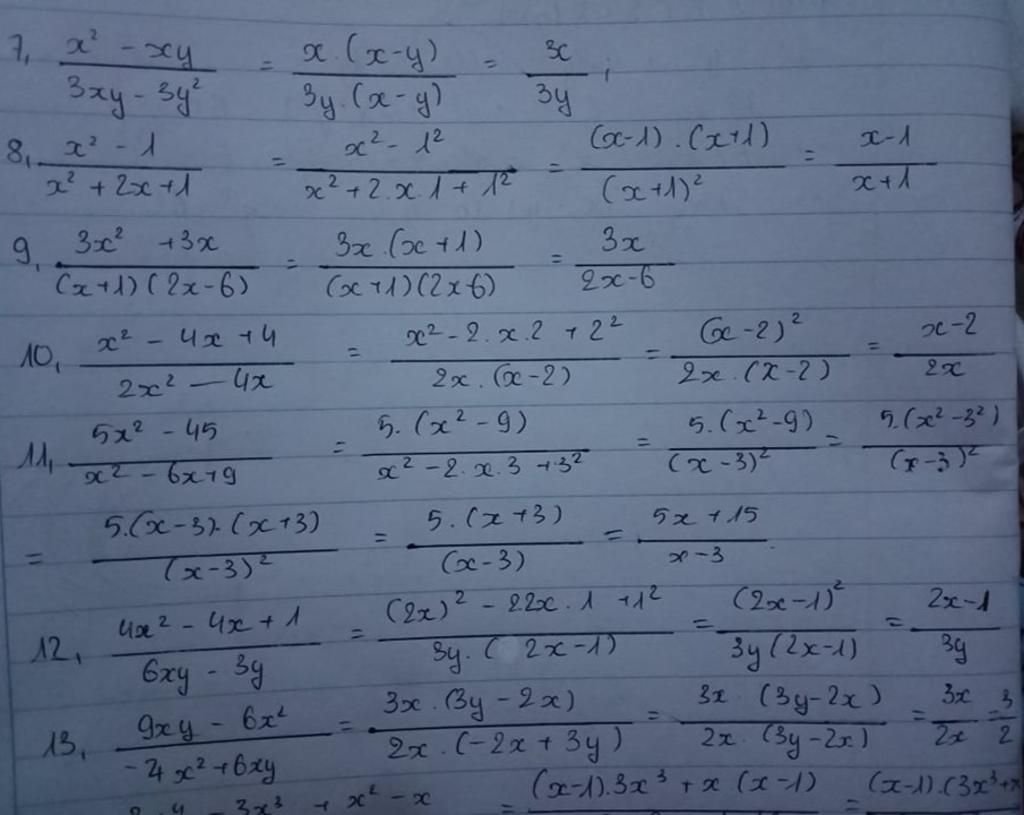 7, (x² - xy)/(3xy - 3y²) = (x.(x-y))/(3y.(x-y)) = x/3y ;
8, (x² - 1)/(x² + 2x + 1) = (x² - 1²)/(x² + 2.x.1 + 1²) = ((x-1).(x+1))/((x+1)²) = (x-1)/(x+1)
9, (3x² + 3x)/((x+1)(2x-6)) = (3x.(x+1))/((x+1)(2x-6)) = 3x/(2x-6)
10, (x² - 4x + 4)/(2x² - 4x) = (x² - 2.x.2 + 2²)/(2x.(x-2)) = ((x-2)²)/(2x.(x-2)) = (x-2)/2x
11, (5x² - 45)/(x² - 6x + 9) = (5.(x² - 9))/(x² - 2.x.3 + 3²) = (5.(x²-9))/((x-3)²) = (5.(x²-3²))/((x-3)²)
= (5.(x-3).(x+3))/((x-3)²) = (5.(x+3))/((x-3)) = (5x+15)/(x-3)
12, (4x² - 4x + 1)/(6xy - 3y) = ((2x)² - 22x.1 + 1²)/(3y.(2x-1)) = ((2x-1)²)/(3y(2x-1)) = (2x-1)/3y
13, (9xy - 6x²)/(-4x² + 6xy) = (3x.(3y-2x))/(2x.(-2x+3y)) = (3x.(3y-2x))/(2x.(3y-2x)) = 3x/2x = 3/2
3x³ + x² - x = (x-1).3x³ + x(x-1) = (x-1).(3x³+x